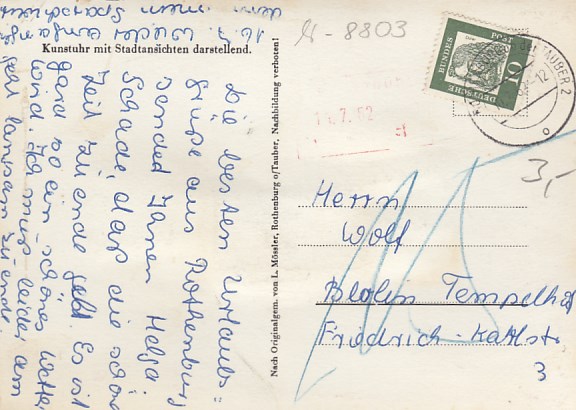 Kunstuhr mit Stadtansichten darstellend.
Die besten Urlaubs-
grüße aus Rothenburg
sendet Ihnen Helga
Schade, daß die schöne
Zeit zu ende geht. Es ist
gard so ein schönes Wetter
wird. Ich muß leider am
16. 7. wieder anfangen
dem
mein
Sparschwein
geht langsam zu ende
Nach Originalgem. von L. Mössler, Rothenburg o/Tauber, Nachbildung verboten!
8803
DEUTSCHE
BUNDES
POST
10
TAUBER 2
-12
7.62
3,-
Herrn
Wolf
Berlin Tempelhof
Friedrich-Karlstr
3